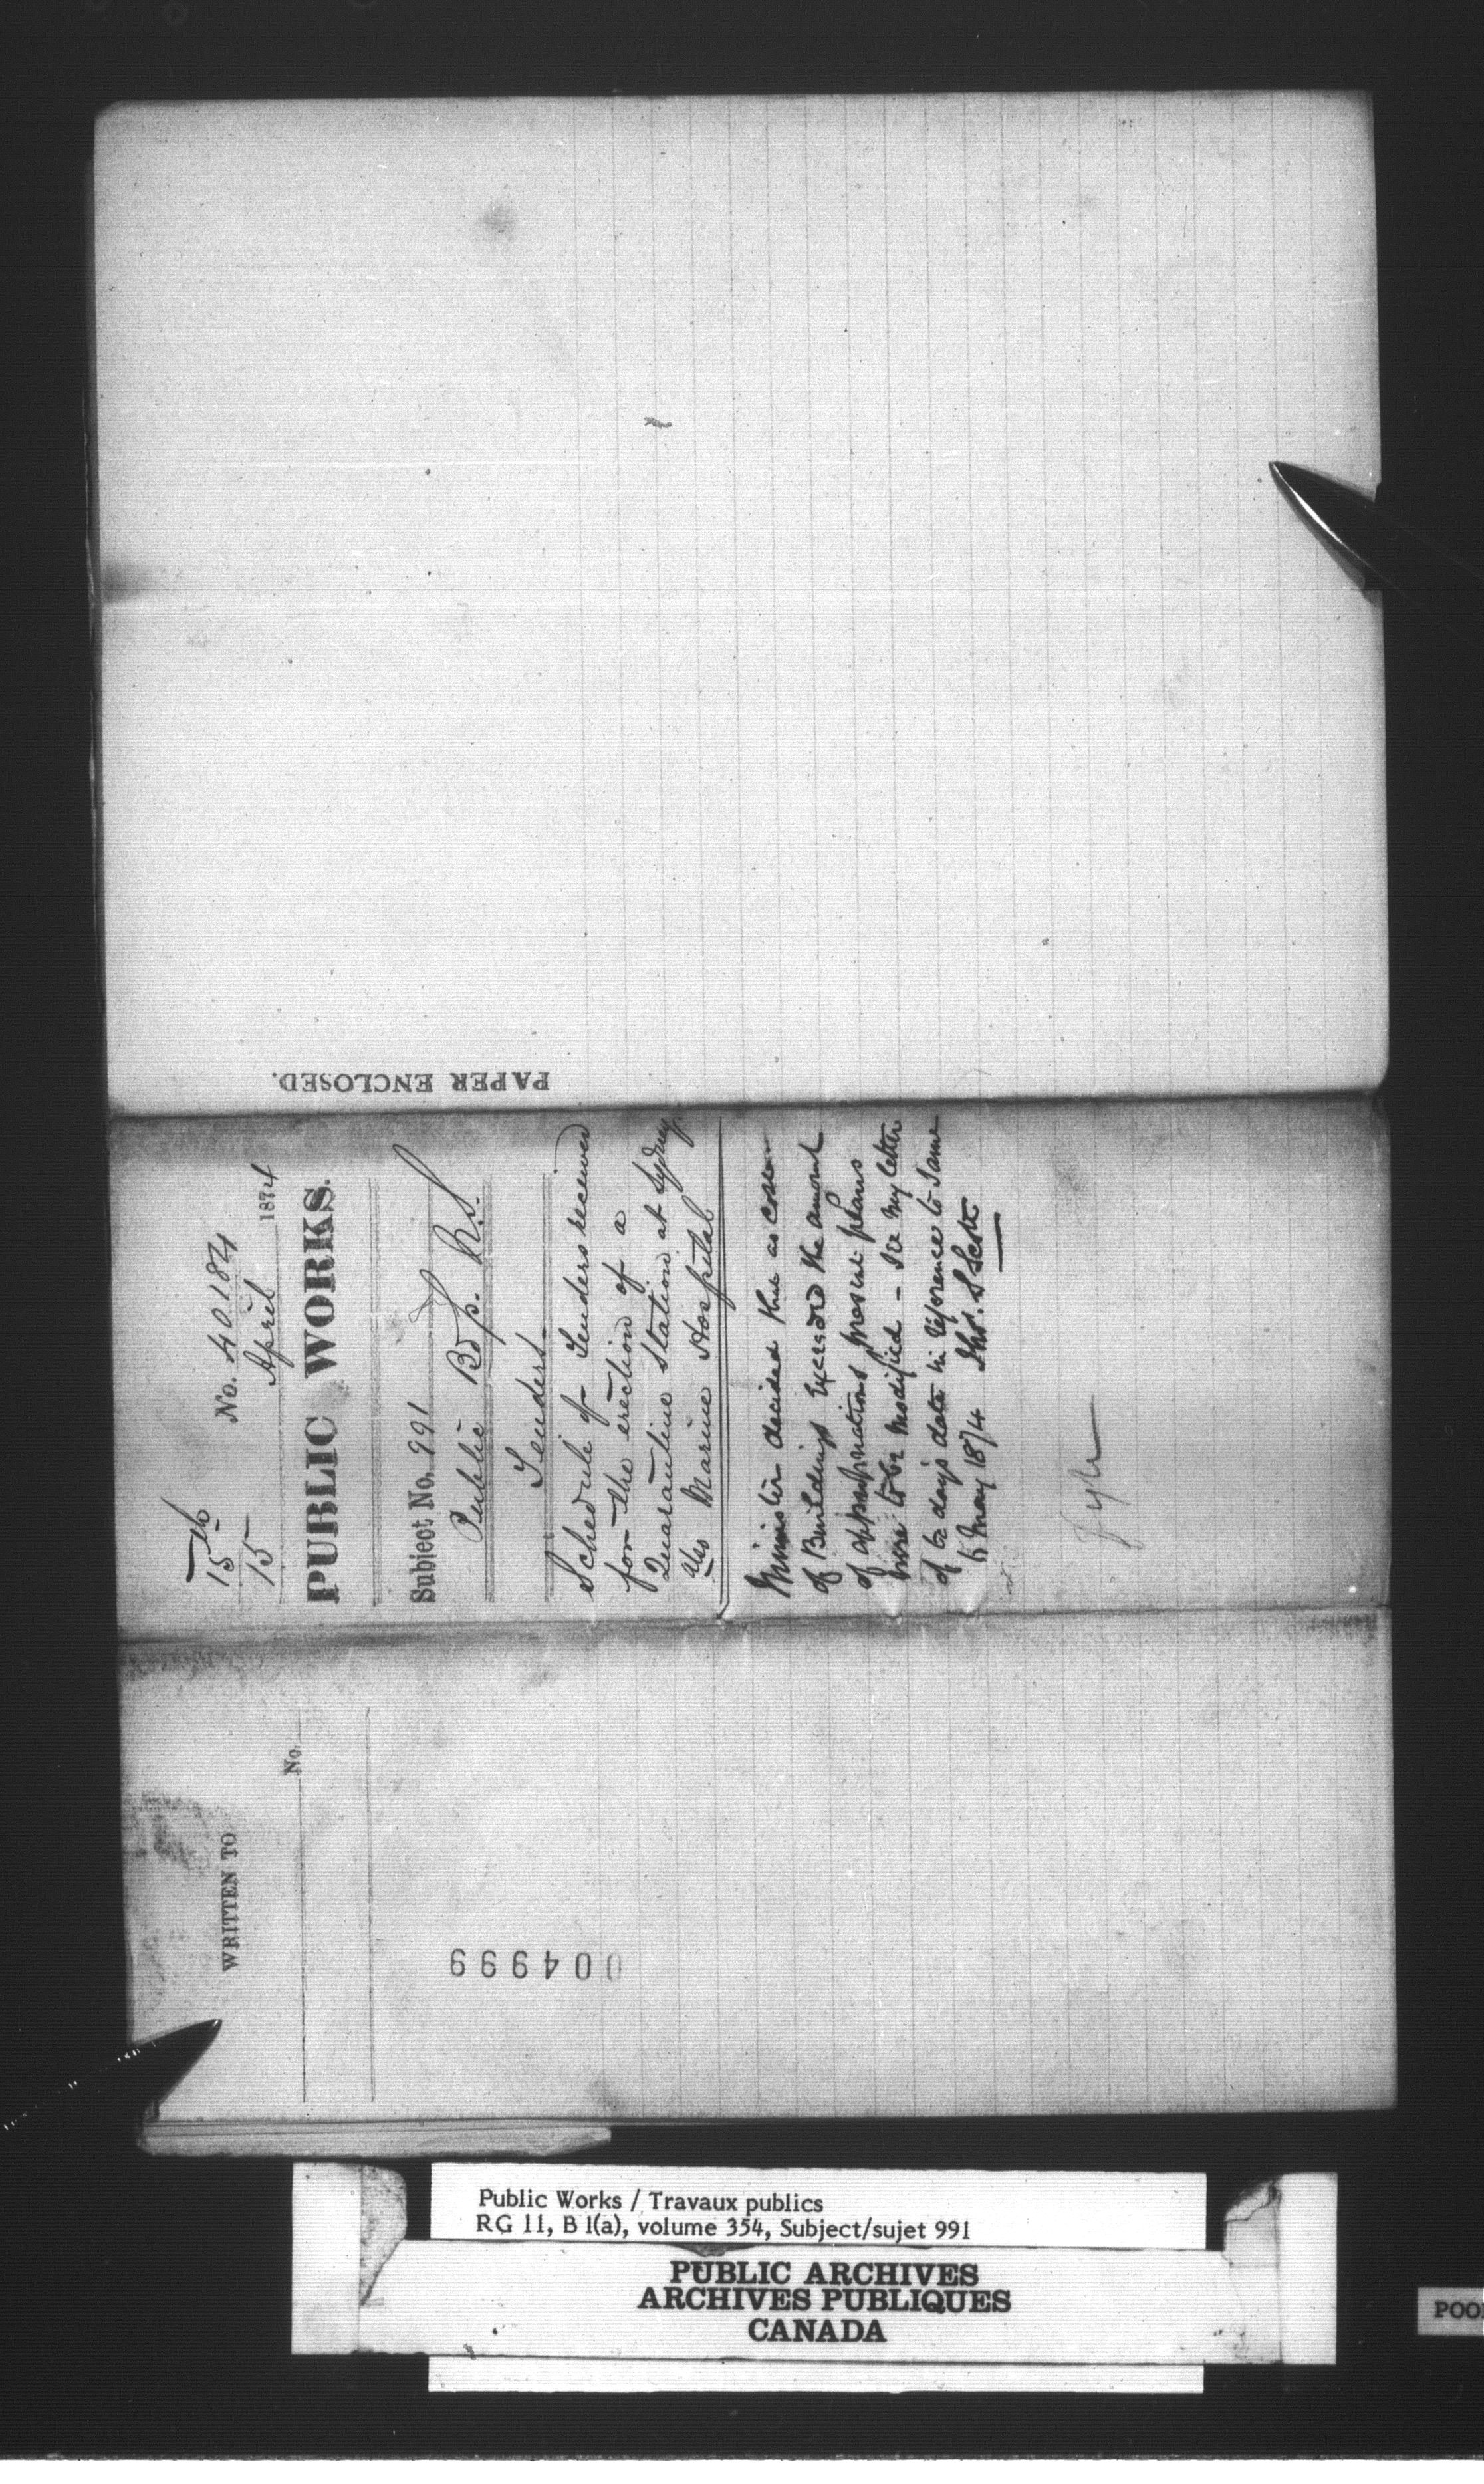 15th No. 40184
15 April 1874
PUBLIC WORKS.
Subject No. 991
Public
Tenders
Schedule of Tenders received
for the erection of a
Quarantine Station at Sydney
Marine Hospital
Minister decided that as
of Buildings Exceeded the amount
of appropriations present plans
were to be modified - See my letter
of to days date in reference to Same
6 May 1874 Thos. S Scott
Fyle
PAPER ENCLOSED.
WRITTEN TO
No.
004999
Public Works / Travaux publics
RG 11, B 1(a), volume 354, Subject/sujet 991
PUBLIC ARCHIVES
ARCHIVES PUBLIQUES
CANADA